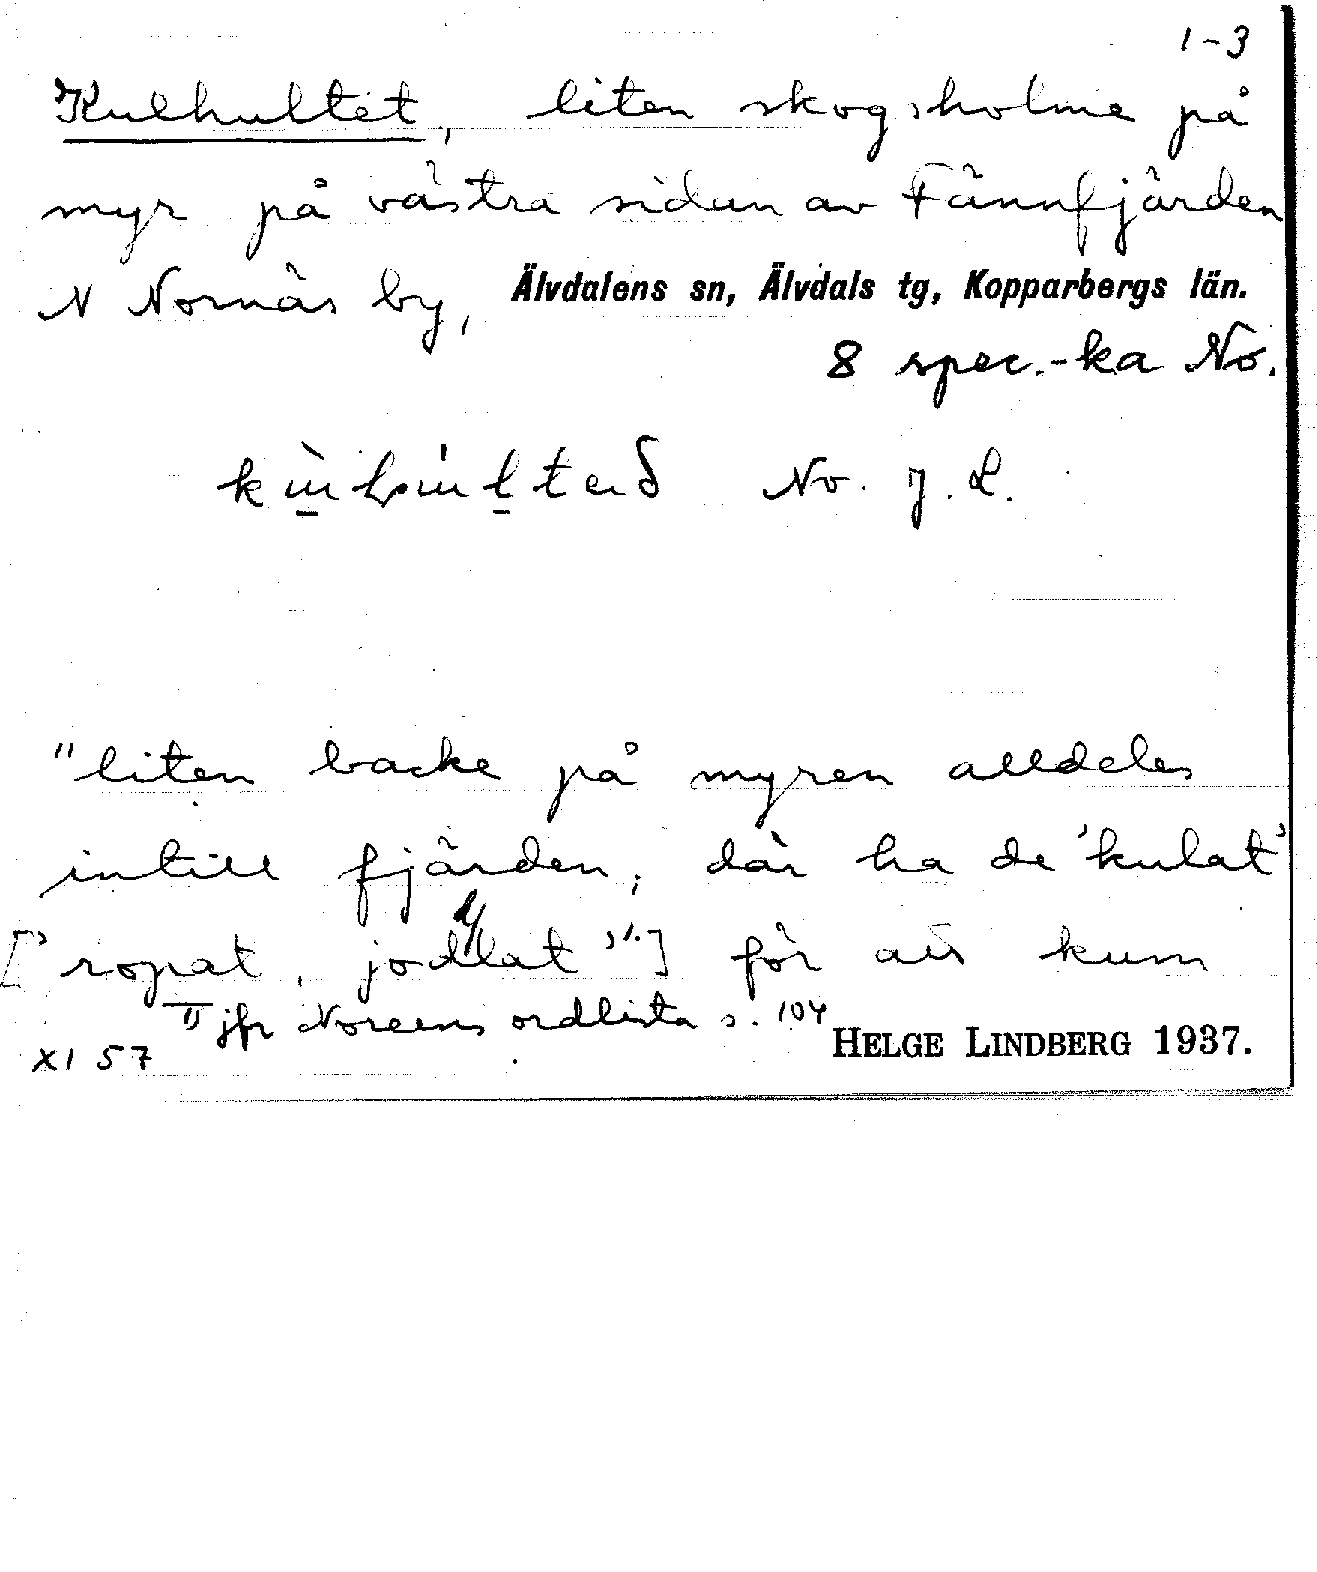 1-3
Kulhultet, liten skogsholme på
myr på västra sidan av Fännfjärden
N Nornäs by, Älvdalens sn, Älvdals tg, Kopparbergs län.
8 spec.-ka No.
No. J. L.
"liten backe på myren alldeles
intill fjärden; där ha de 'kulat'
['ropat, jodlat' 1.] för att kum
1) jfr Noreens ordlista s. 104
XI 57 HELGE LINDBERG 1937.